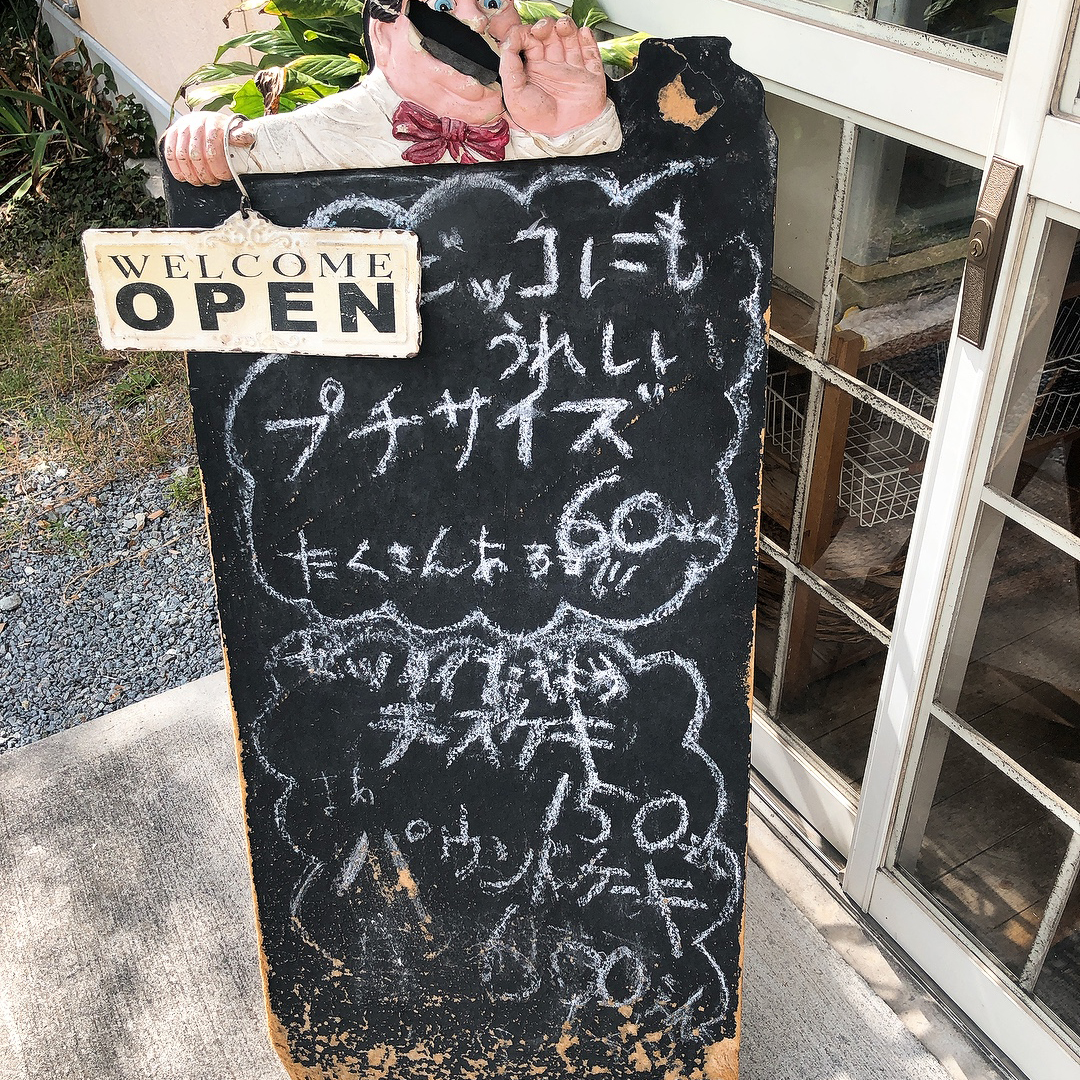 WELCOME
OPEN
ッコにも
うれしい
プチサイズ
たくさんある
60
チーズケーキ
150
パウンドケーキ
600